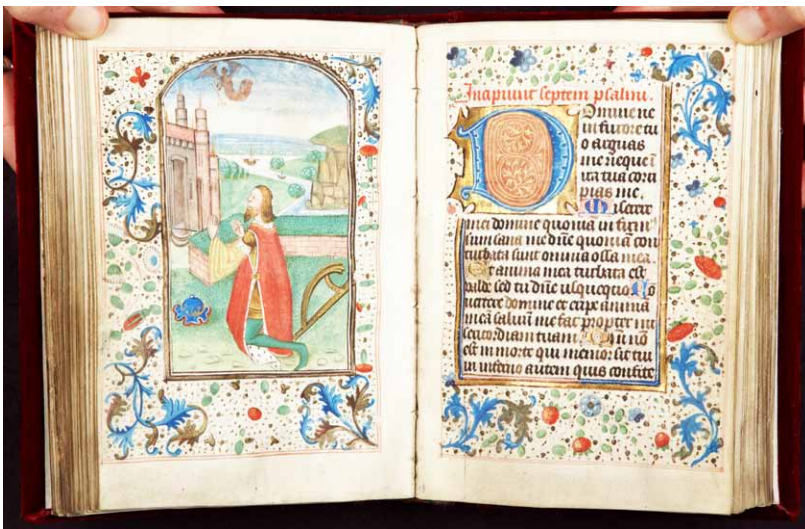 Incipiunt septem psalmi.
Domine ne
in furore tu
o arguas
me neque i
ira tua corri
pias me.
Miserere
mei domine quonia infirm
sum sana me dne quonia con
turbata sunt omnia ossa mea.
Et anima mea turbata est
valde sed tu dne usquequo Co
vertere domine et eripe anima
mea saluu me fac propter mi
sericordiam tuam. Quonia no
est in morte qui memor sit tui
in inferno autem quis confite